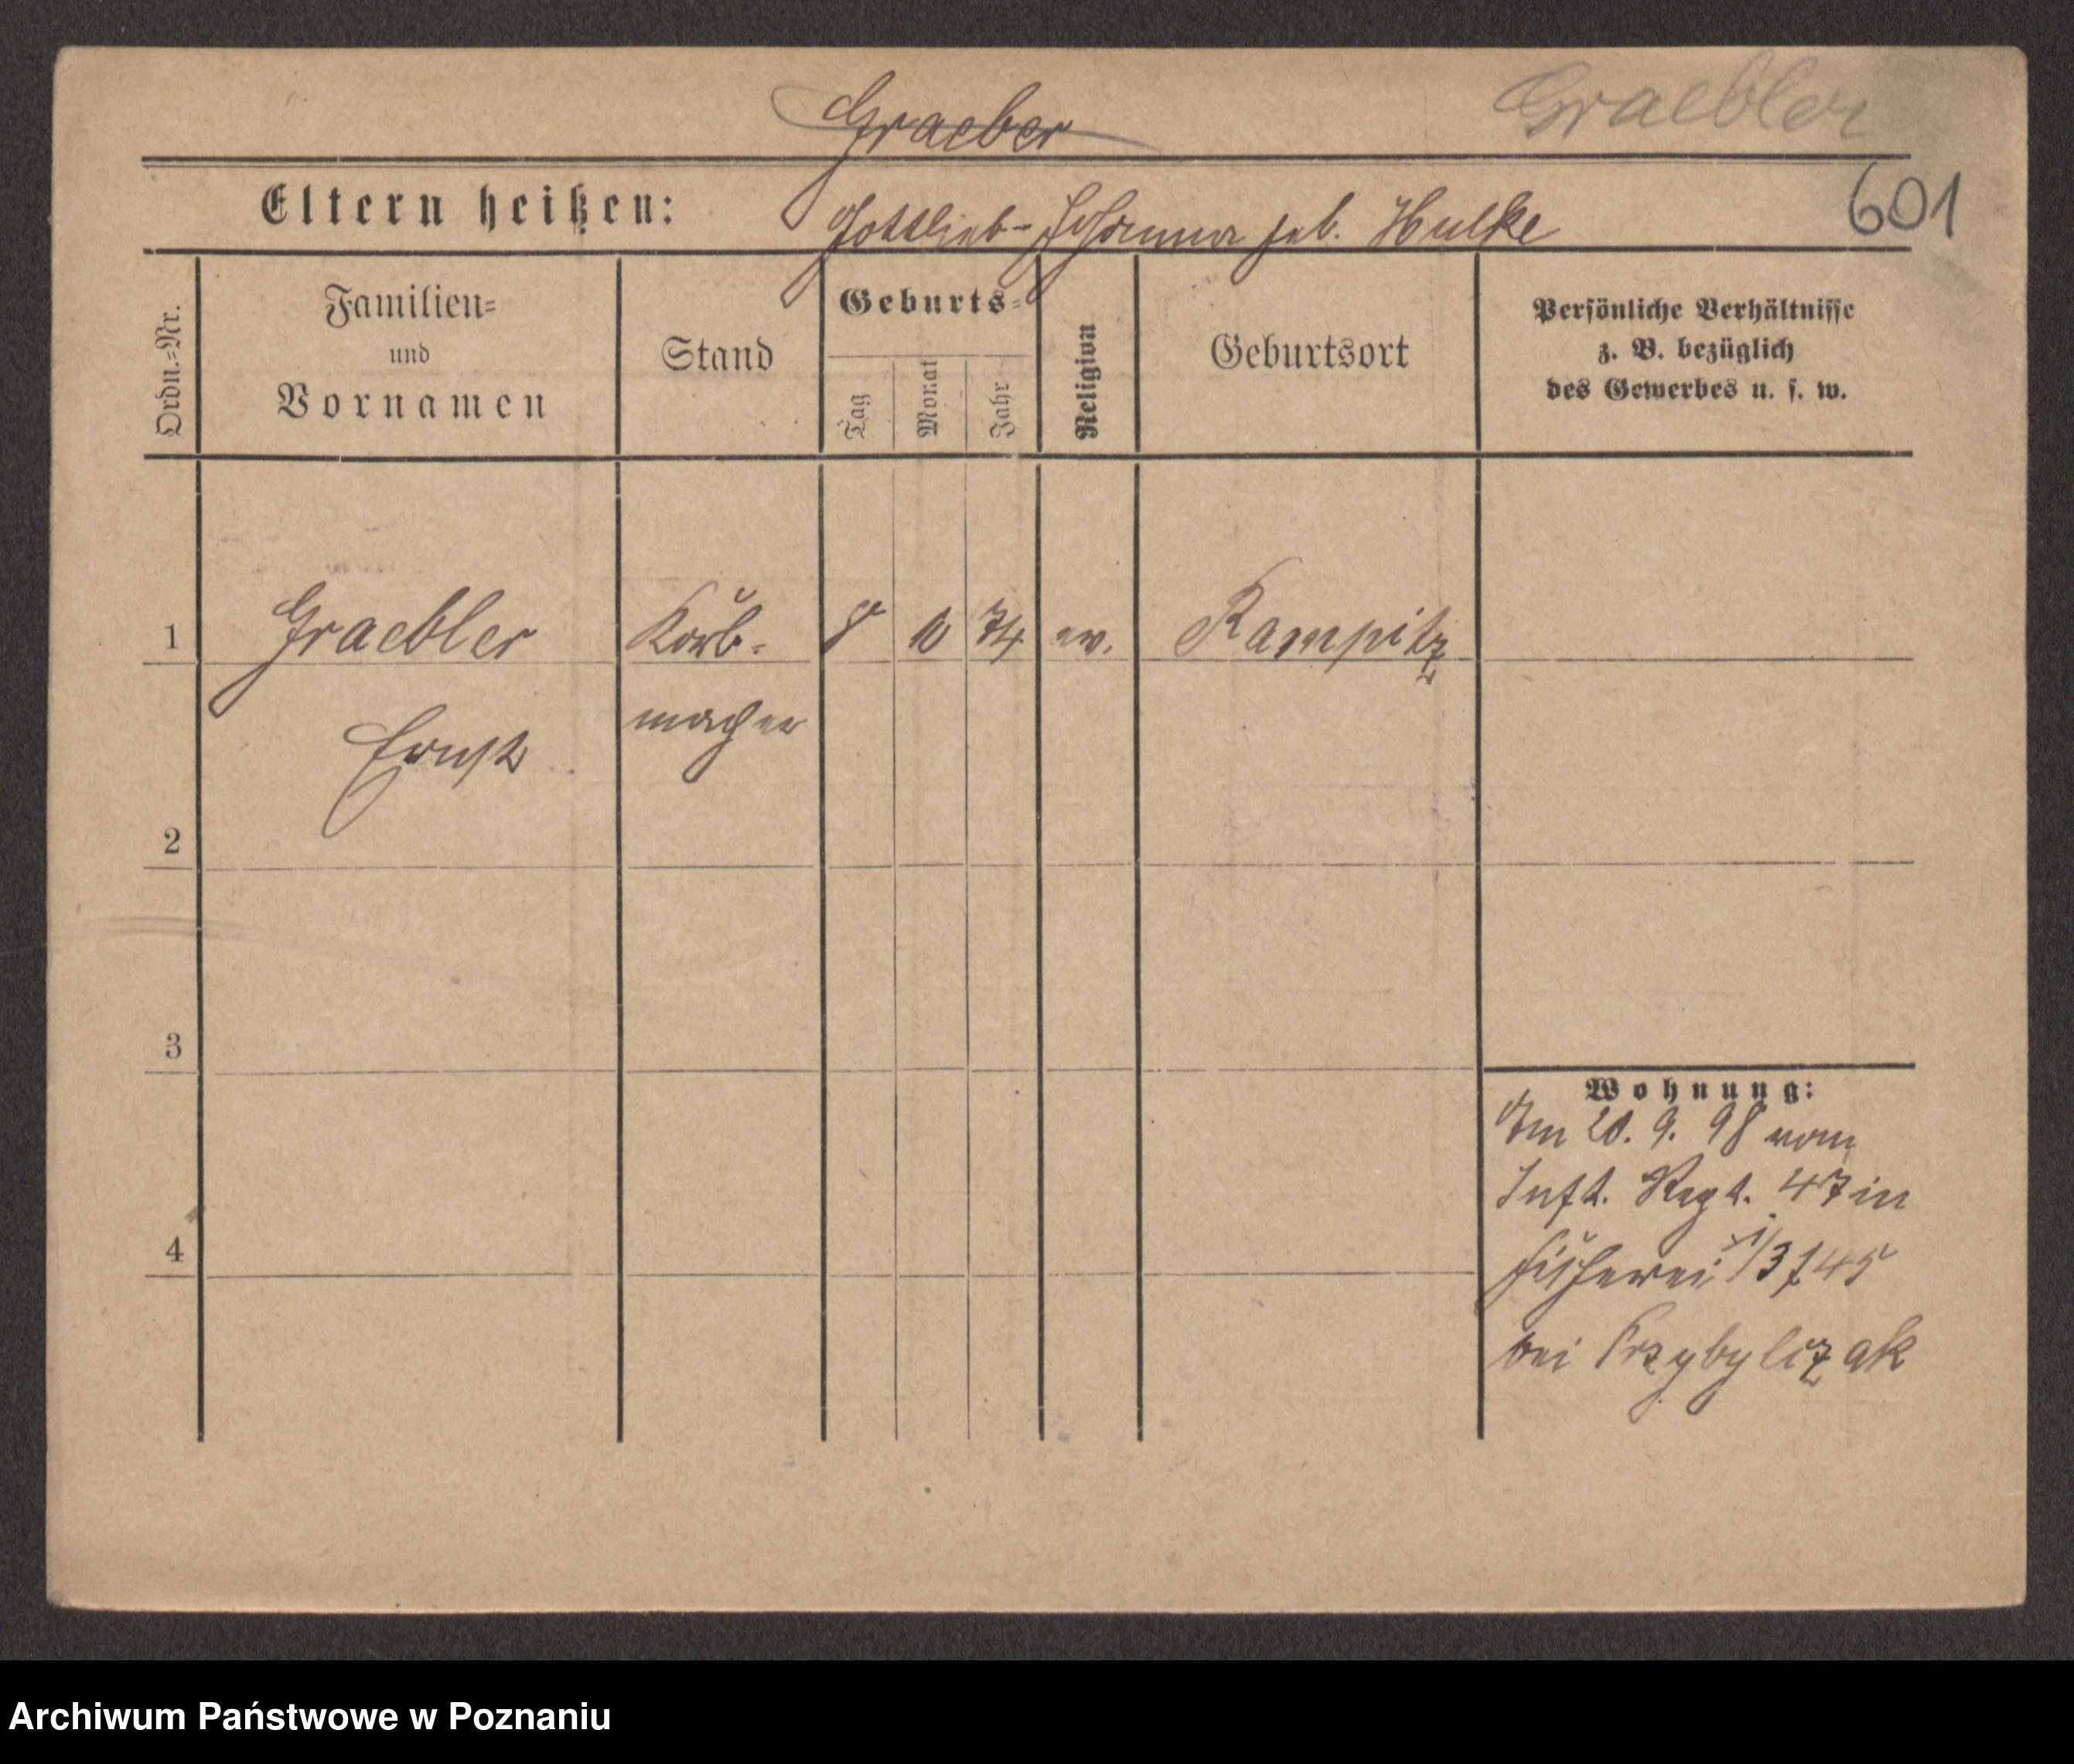 Graeber
Graebler
Eltern heißen:
Gottlieb - Johanna geb. Hulke
601
Ordn.-Nr.
Familien-
und
Vornamen
Stand
Geburts-
Tag
Monat
Jahr
Religion
Geburtsort
Persönliche Verhältnisse
z. B. bezüglich
des Gewerbes u. s. w.
1
Graebler
Korb-
8
10
74
ev.
Rampitz
Ernst
macher
2
3
4
Wohnung:
Am 20. 9. 98 vom
Inft. Regt. 47 in
Fischerei 3 f 45
bei Przybylczak
Archiwum Państwowe w Poznaniu